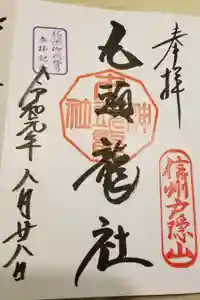 奉拝
信州戸隠山
九頭龍社
令和元年八月廿八日